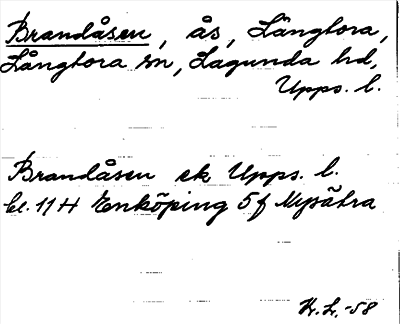 Brandåsen, ås, Långtora,
Långtora sn, Lagunda hd,
Upps. l.
Brandåsen ek Upps. l.
bl. 11 H Enköping 5 f Mysätra
H. L. -58